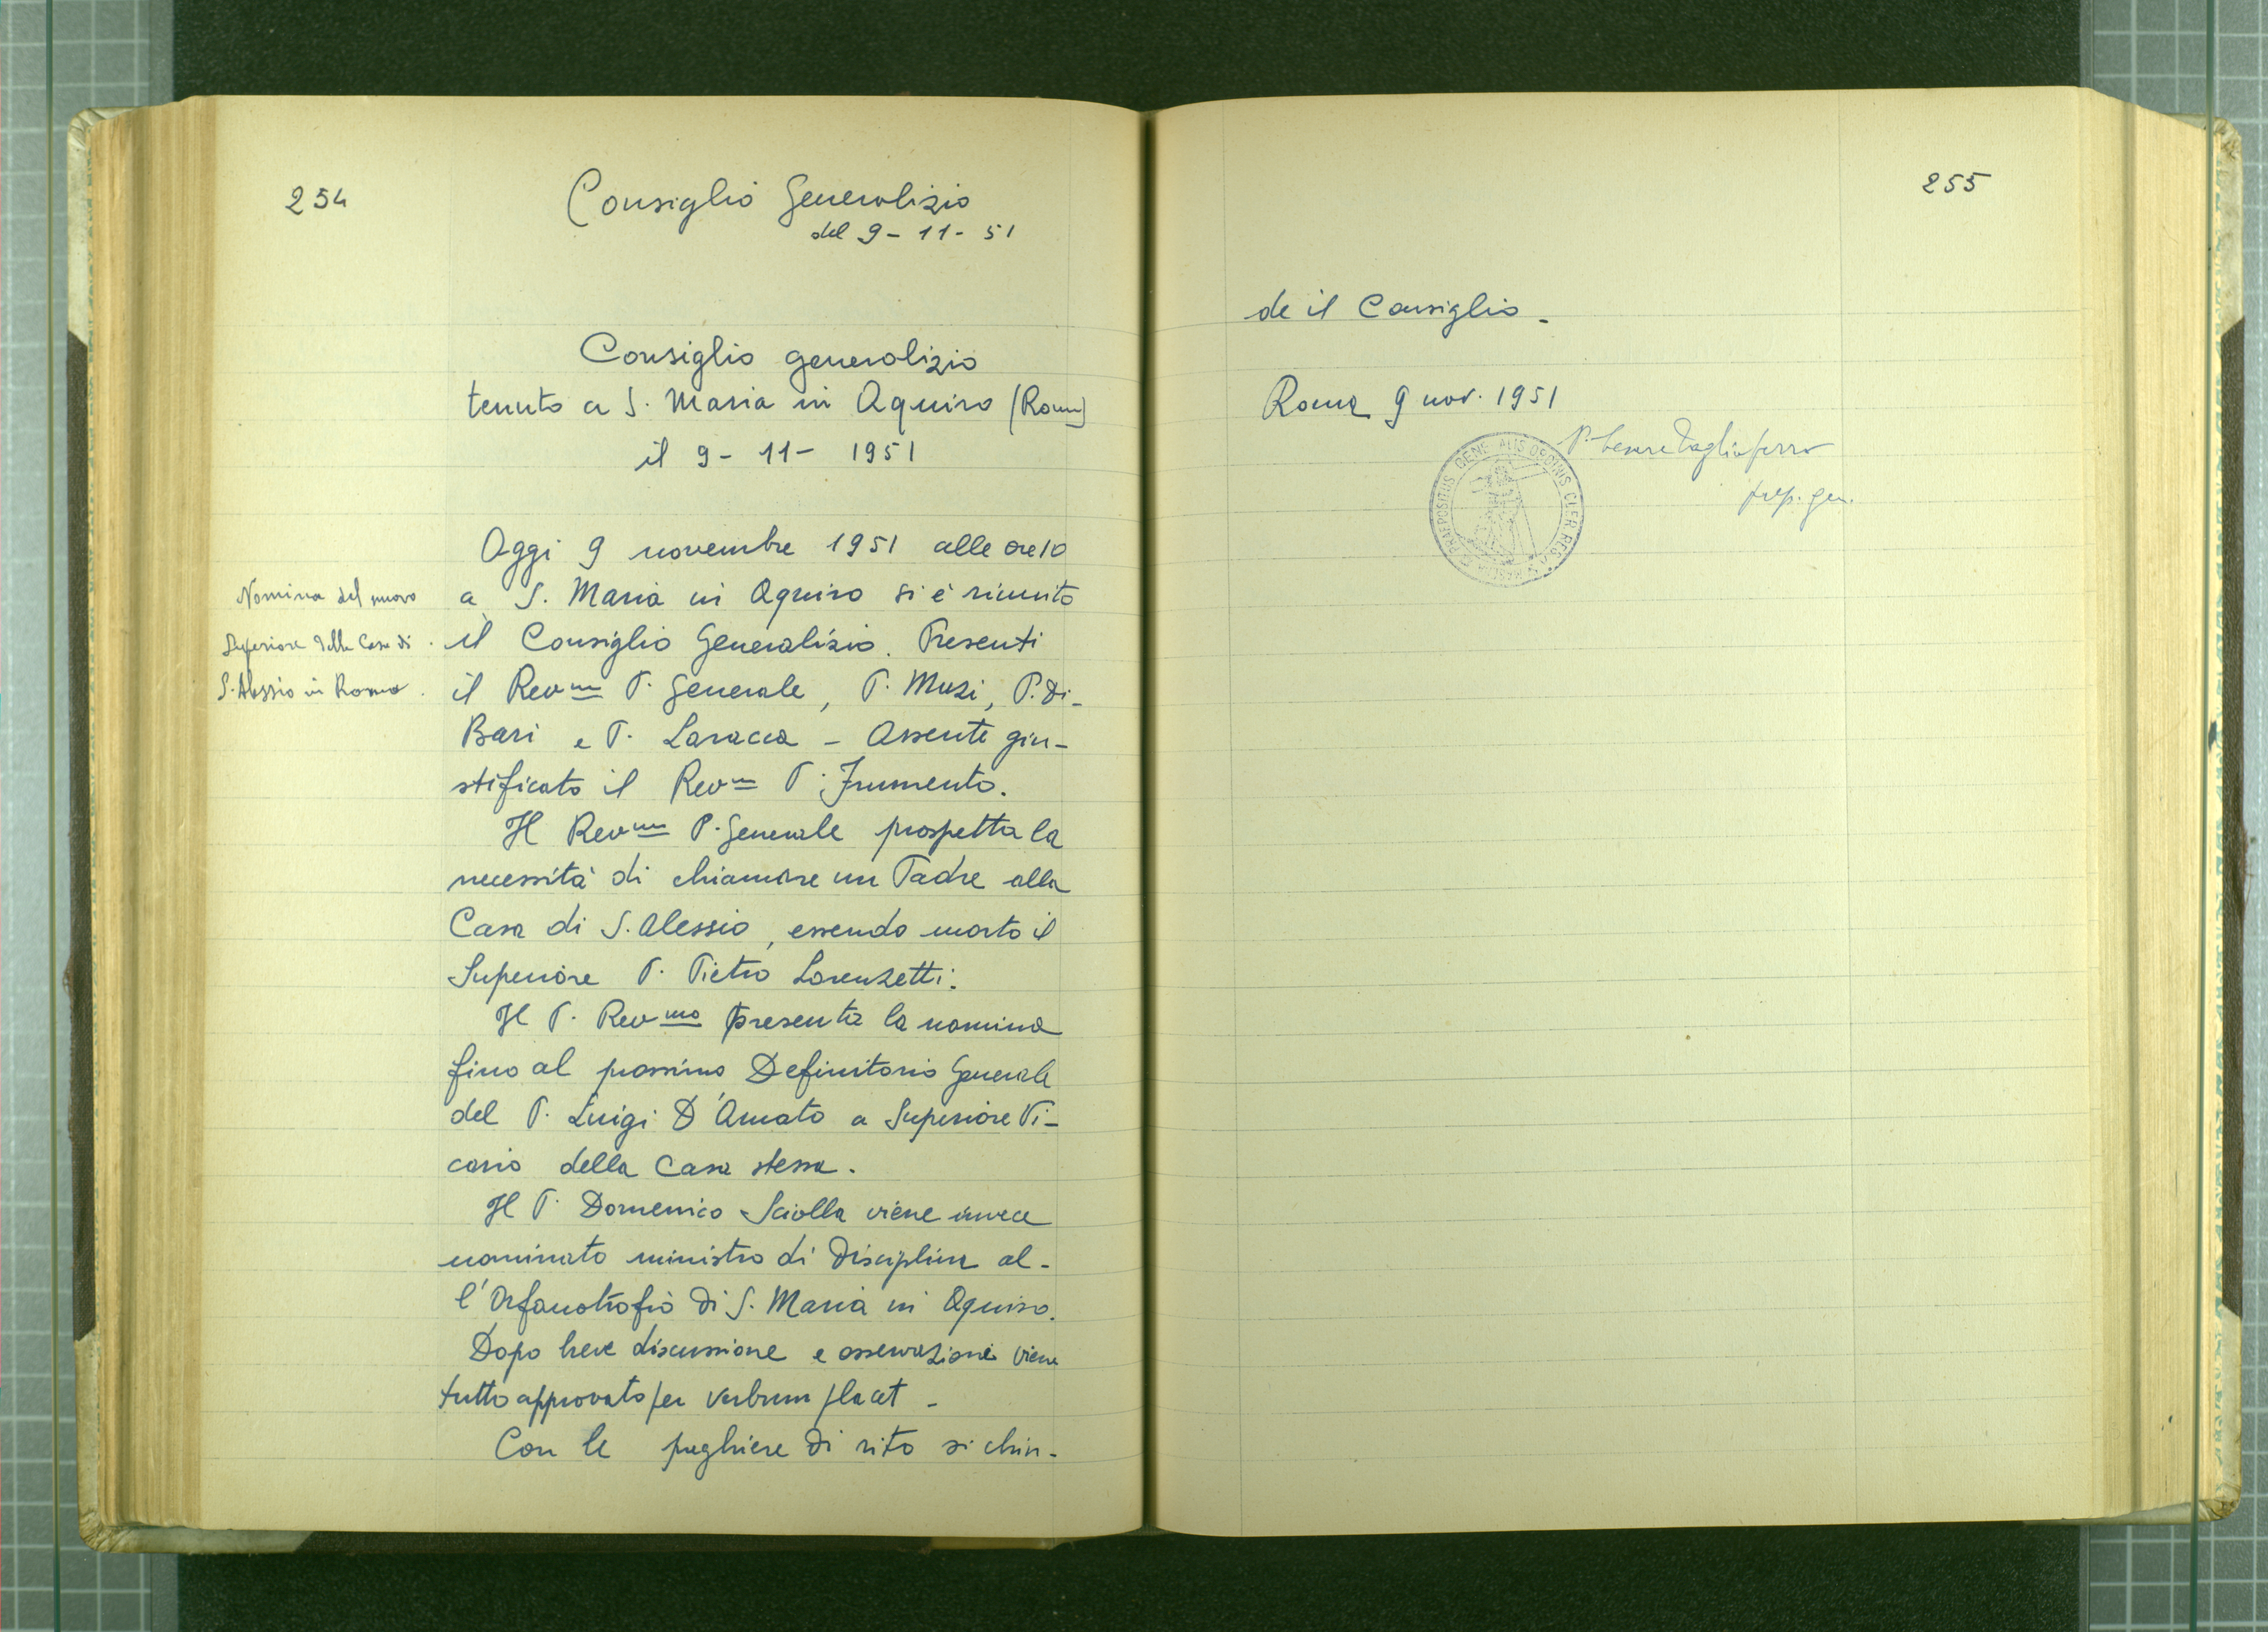 254
Consiglio Generalizio
del 9 - 11 - 51
Consiglio generalizio
tenuto a S. Maria in Aquiro (Roma)
il 9 - 11 - 1951
Oggi 9 novembre 1951 alle ore 10
a S. Maria in Aquiro si è riunito
il Consiglio Generalizio. Presenti
il Rev.mo P. Generale, P. Muzi, P. Di-
Bari e P. Laracca - Assente giu-
stificato il Rev.mo P. Frumento.
Il Rev.mo P. Generale prospetta la
necessità di chiamare un Padre alla
Casa di S. Alessio, essendo morto il
Superiore P. Pietro Lorenzetti.
Il P. Rev.mo presenta la nomina
fino al prossimo Definitorio Generale
del P. Luigi D'Amato a Superiore Vi-
cario della Casa stessa.
Il P. Domenico Sciolla viene invece
nominato ministro di Disciplina al-
l'Orfanotrofio di S. Maria in Aquiro.
Dopo breve discussione e osservazioni viene
tutto approvato per verbum placet -
Con le preghiere di rito si chiu-
Nomina del nuovo
Superiore della Casa di
S. Alessio in Roma.
255
de il Consiglio -
Roma 9 nov. 1951
P. Cesare Tagliaferro
prep. gen.
PRAEPOSITUS GENERALIS ORDINIS CLER. REG. A SOMASCHA